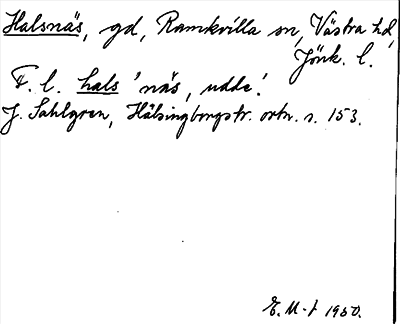 Halsnäs, gd, Ramkvilla sn, Västra hd,
Jönk. l.
F. l. hals 'näs, udde'.
J. Sahlgren, Hälsingborgstr. ortn. s. 153.
E. M-t 1950.